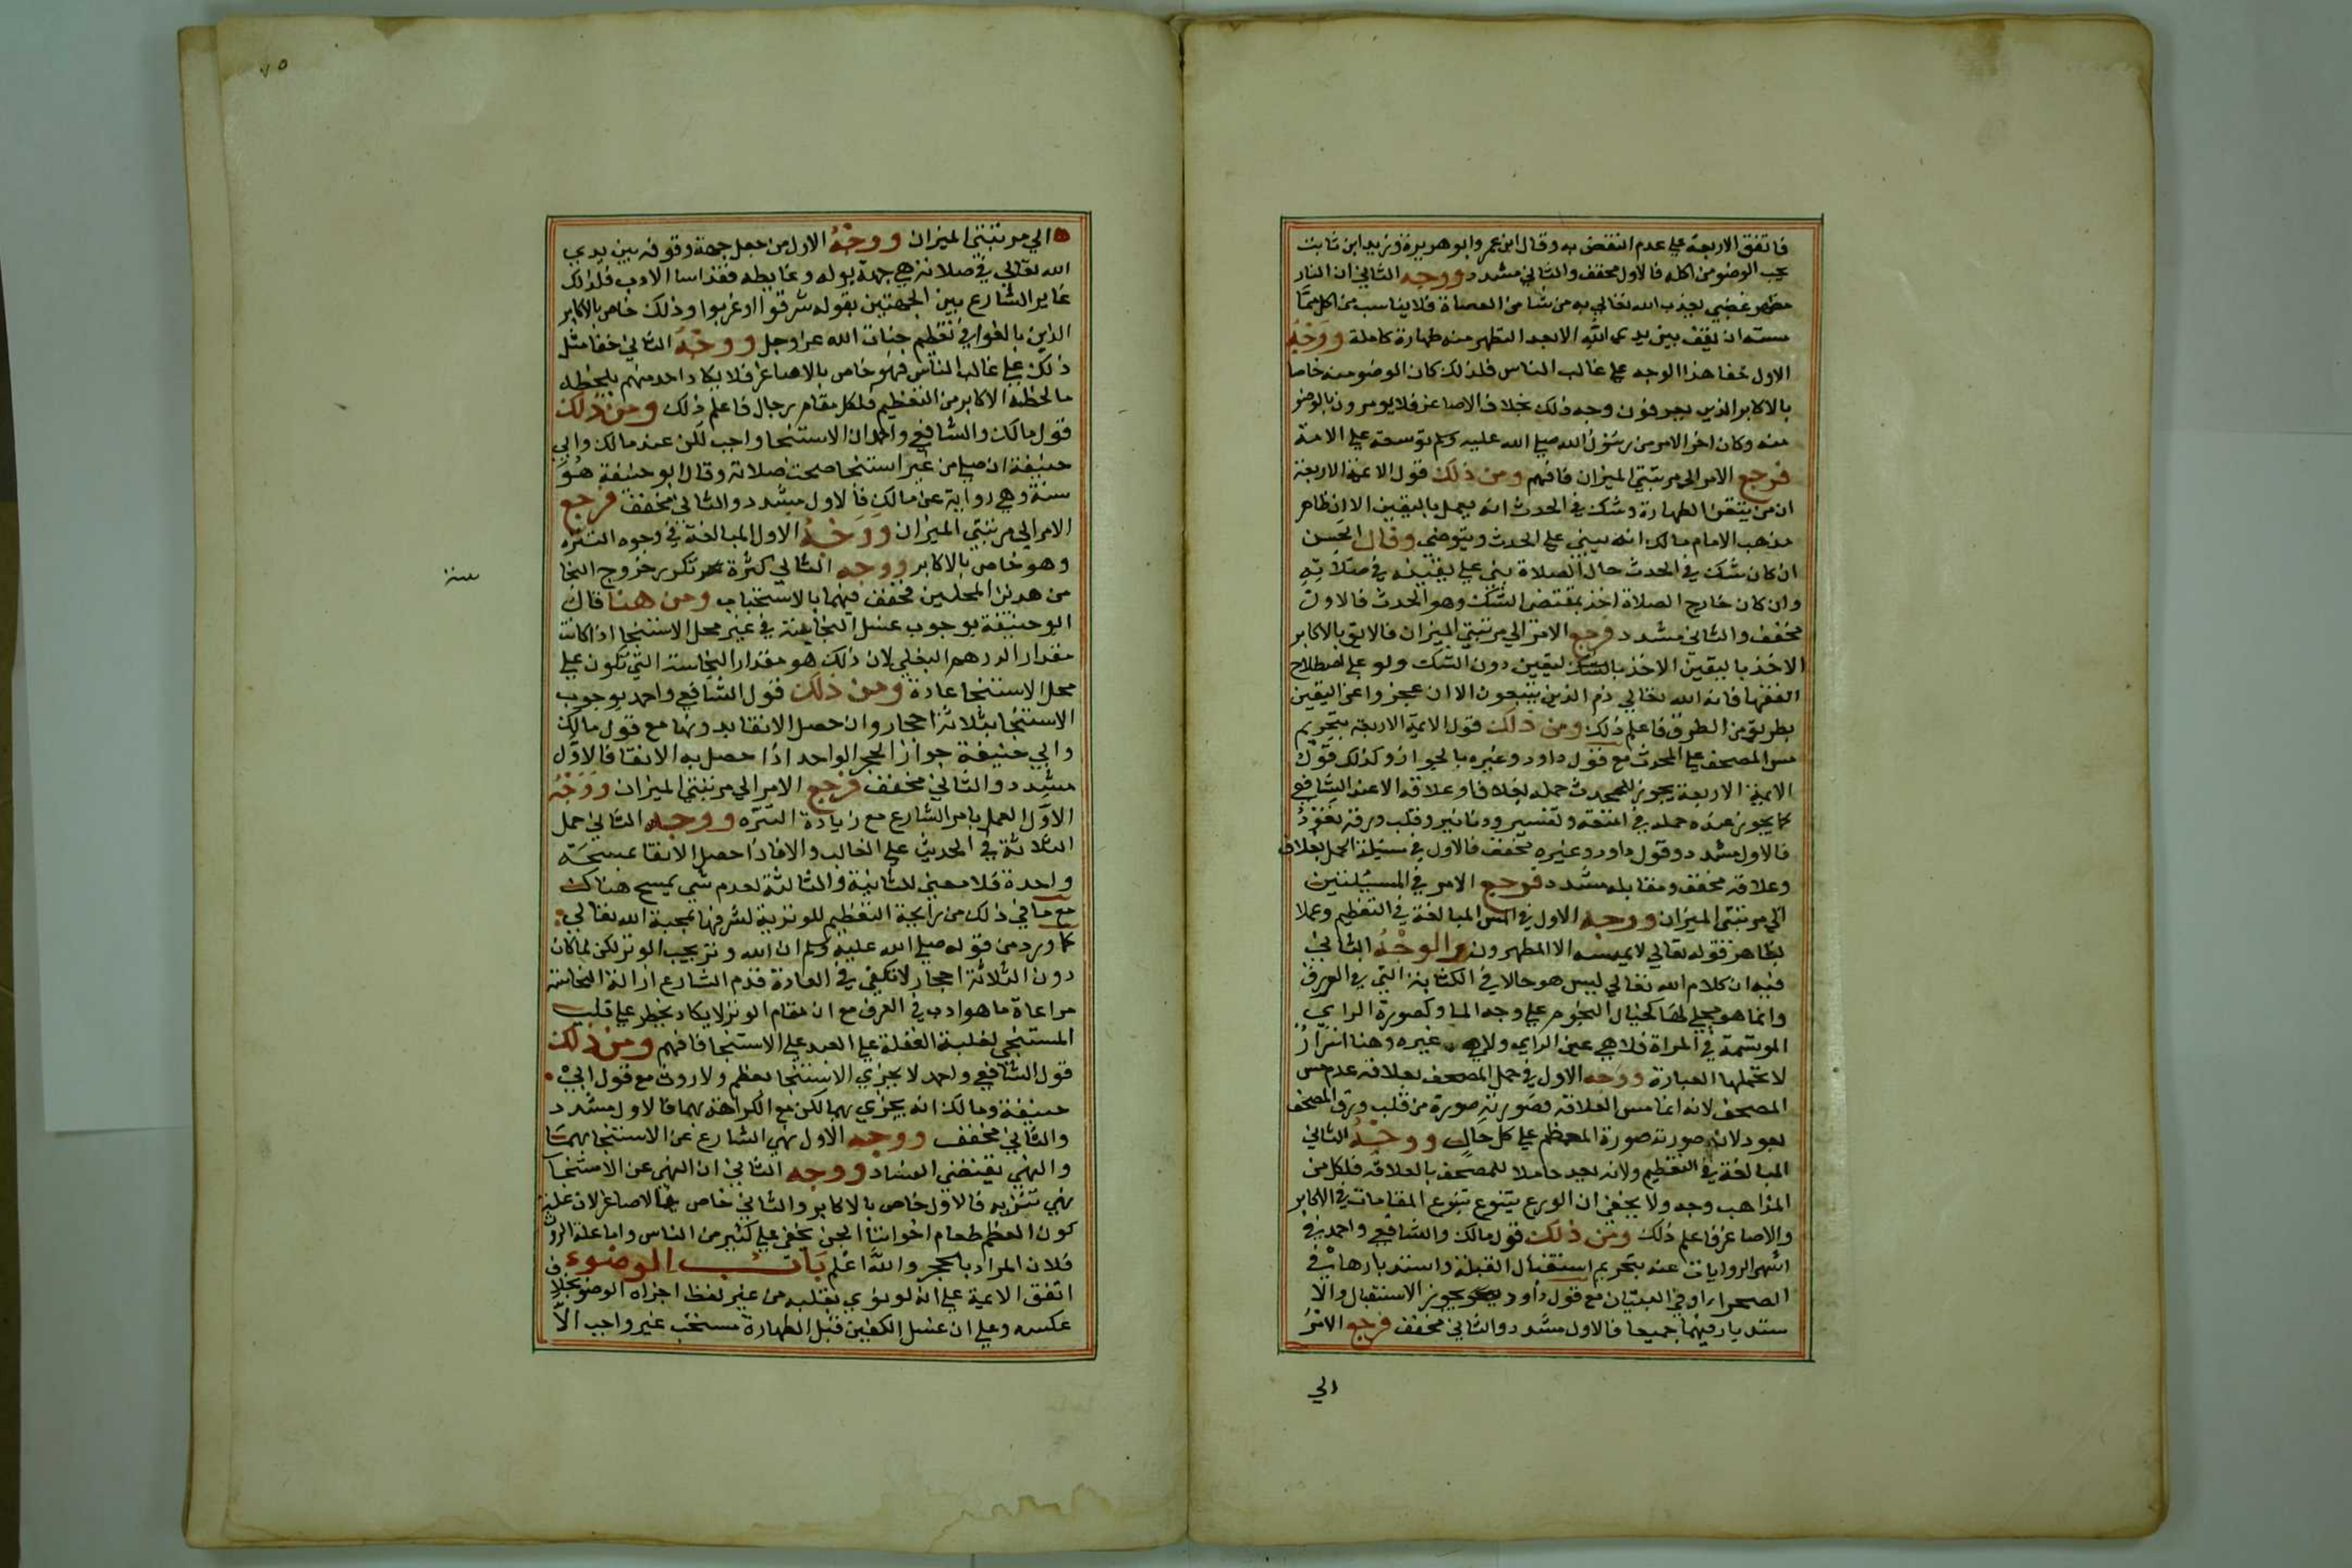 فاتفق الاربعة علي عدم النقض به وقال ابن عمر وابو هريرة وزيد ابن ثابت
يجب الوضو من اكله فالاول مخفف والثاني مشدد ووجه الثاني ان النار
مظهر غضبي يعذب الله تعالي به من شا من العصاة فلا يناسب من اكل مما
مسته ان يقف بين يدي الله الا بعد التطهر منه طهارة كاملة ووجه
الاول خفا هذا الوجه علي غالب الناس فلذلك كان الوضو منه خاصا
بالاكابر الذين يعرفون وجه ذلك بخلاف الاصاغر فلا يومرون بالوضو
منه وكان اخر الامر من رسول الله صلي الله عليه وسلم توسعة علي الامة
فرجع الامر الي مرتبتي الميزان فافهم ومن ذلك قول الائمة الاربعة
ان من تيقن الطهارة وشك في الحدث انه يعمل باليقين الا ان ظاهر
مذهب الامام مالك انه يبني علي الحدث ويتوضي وقال الحسن
ان كان شك في الحدث حال الصلاة بني علي يقينه في صلاته
وان كان خارج الصلاة اخذ بمقتضي الشك وهو الحدث فالاول
مخفف والثاني مشدد فرجع الامر الي مرتبتي الميزان فالائق بالاكابر
الاخذ باليقين الاخذ باليقين دون الشك ولو علي اصطلاح
الفقها فانه الله تعالي ذم الذين يتبعون الا ان عجزوا عن اليقين
بطريق من الطرق فاعلم ذلك ومن ذلك قول الايمة الاربعة بتحريم
مس المصحف علي المحدث مع قول داود وغيره بالجواز وكذلك قول
الايمة الاربعة يجوز للمحدث حمله بغلاف وعلاقة الا عند الشافعي
كما يجوز عنده حمله في امتعة وتفسير ودنانير وقلب ورقه بعود
فالاول مشدد وقول داود وغيره مخفف فالاول في مسئلة الحمل بغلاف
وعلاقة مخفف ومقابله مشدد فرجع الامر في المسئلتين
الي مرتبتي الميزان ووجه الاول في المس المبالغة في التعظيم وعملا
بظاهر قوله تعالي لا يمسه الا المطهرون والوجه الثاني
فيه ان كلام الله تعالي ليس هو حالا في الكتابة التي في الورق
وانما هو مجلي لها كخيال النجوم علي وجه الما وكصورة الراي
المرتسمة في المراة فلا هي عين الراي ولا هي غيره وهنا اسرار
لا تحتملها العبارة ووجه الاول في حمل المصحف بعلاقة عدم مس
المصحف لانه انما مس العلاقة وصورته صورة من قلب ورق المصحف
بعود لان صورته صورة المعظم علي كل حال ووجه الثاني
المبالغة في التعظيم ولانه يعد حاملا للمصحف بالعلاقة فلكل من
المذاهب وجه ولا يخفي ان الورع يتنوع بتنوع المقامات في الاكابر
والاصاغر فاعلم ذلك ومن ذلك قول مالك والشافعي واحمد في
اشهر الروايات عنه بتحريم استقبال القبلة واستدبارها في
الصحراء او في البنيان مع قول داود يجوز الاستقبال والا
ستدبار فيهما جميعا فالاول مشدد والثاني مخفف فرجع الامر
الي
الي مرتبتي الميزان ووجه الاول من جعل جهة وقوفه بين يدي
الله تعالي في صلاته هي جهة بوله وغايطه فقد اسا الادب فلذلك
غاير الشارع بين الجهتين بقوله شرقوا او غربوا وذلك خاص بالاكابر
الذين بالغوا في تعظيم جناب الله عز وجل ووجه الثاني خفا مثل
ذلك علي غالب الناس فهو خاص بالاصاغر فلا يكاد احد منهم يلحظه
ما لحظه الاكابر من التعظيم فلكل مقام رجال فاعلم ذلك ومن ذلك
قول مالك والشافعي واحمد ان الاستنجا واجب لكن عند مالك وابي
حنيفة ان صلي من غير استنجا صحت صلاته وقال ابو حنيفة هو
سنة وهي رواية عن مالك فالاول مشدد والثاني مخفف فرجع
الامر الي مرتبتي الميزان ووجه الاول المبالغة في وجوه التنزه
وهو خاص بالاكابر ووجه الثاني كثرة تكرر خروج النجا
سة
من هذين المحلين فخفف فيهما بالاستحباب ومن هنا قال
ابو حنيفة بوجوب غسل النجاسة في غير محل الاستنجا اذا كانت
مقدار الدرهم البغلي لان ذلك هو مقدار النجاسة التي تكون علي
محل الاستنجا عادة ومن ذلك قول الشافعي واحمد بوجوب
الاستنجا بثلاثة احجار وان حصل الانقا بدونها مع قول مالك
وابي حنيفة جواز الحجر الواحد اذا حصل به الانقا فالاول
مشدد والثاني مخفف فرجع الامر الي مرتبتي الميزان ووجه
الاول العمل بامر الشارع مع زيادة التنزه ووجه الثاني حمل
الثلاثة في الحديث علي الغالب والا فاذا حصل الانقا بمسحة
واحدة فلا معني للثانية والثالثة لعدم شي يمسح هناك
مع ما في ذلك من رايحة التعظيم للوترية لشرفها بمحبة الله تعالي
كما ورد من قوله صلي الله عليه وسلم ان الله وتر يحب الوتر لكن لما كان
دون الثلاثة احجار لا تكفي في العادة قدم الشارع ازالة النجاسة
مراعاة ما هو ادب في العرف مع ان مقام الوتر لا يكاد يخطر علي قلب
المستنجي لغلبة الغفلة علي العبد علي الاستنجا فافهم ومن ذلك
قول الشافعي واحمد لا يجزي الاستنجا بعظم ولا روث مع قول ابي
حنيفة ومالك انه يجزي بهما لكن مع الكراهة بهما فالاول مشدد
والثاني مخفف ووجه الاول نهي الشارع عن الاستنجا بهما
والنهي يقتضي الفساد ووجه الثاني ان النهي عن الاستنجا
نهي تنزيه فالاول خاص بالاكابر والثاني خاص بالاصاغر لان علة
كون العظم طعام اخواننا الجن يخفي علي كثير من الناس واما علة الروث
فلان المراد بالحجر والله اعلم باب الوضوء
اتفق الايمة علي انه لو نوي بقلبه من غير لفظ اجزاه الوضو بخلاف
عكسه وعلي ان غسل الكفين قبل الطهارة مستحب غير واجب الا